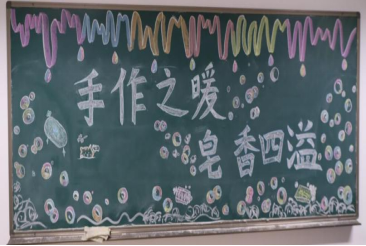 手作之暖
皂香四溢